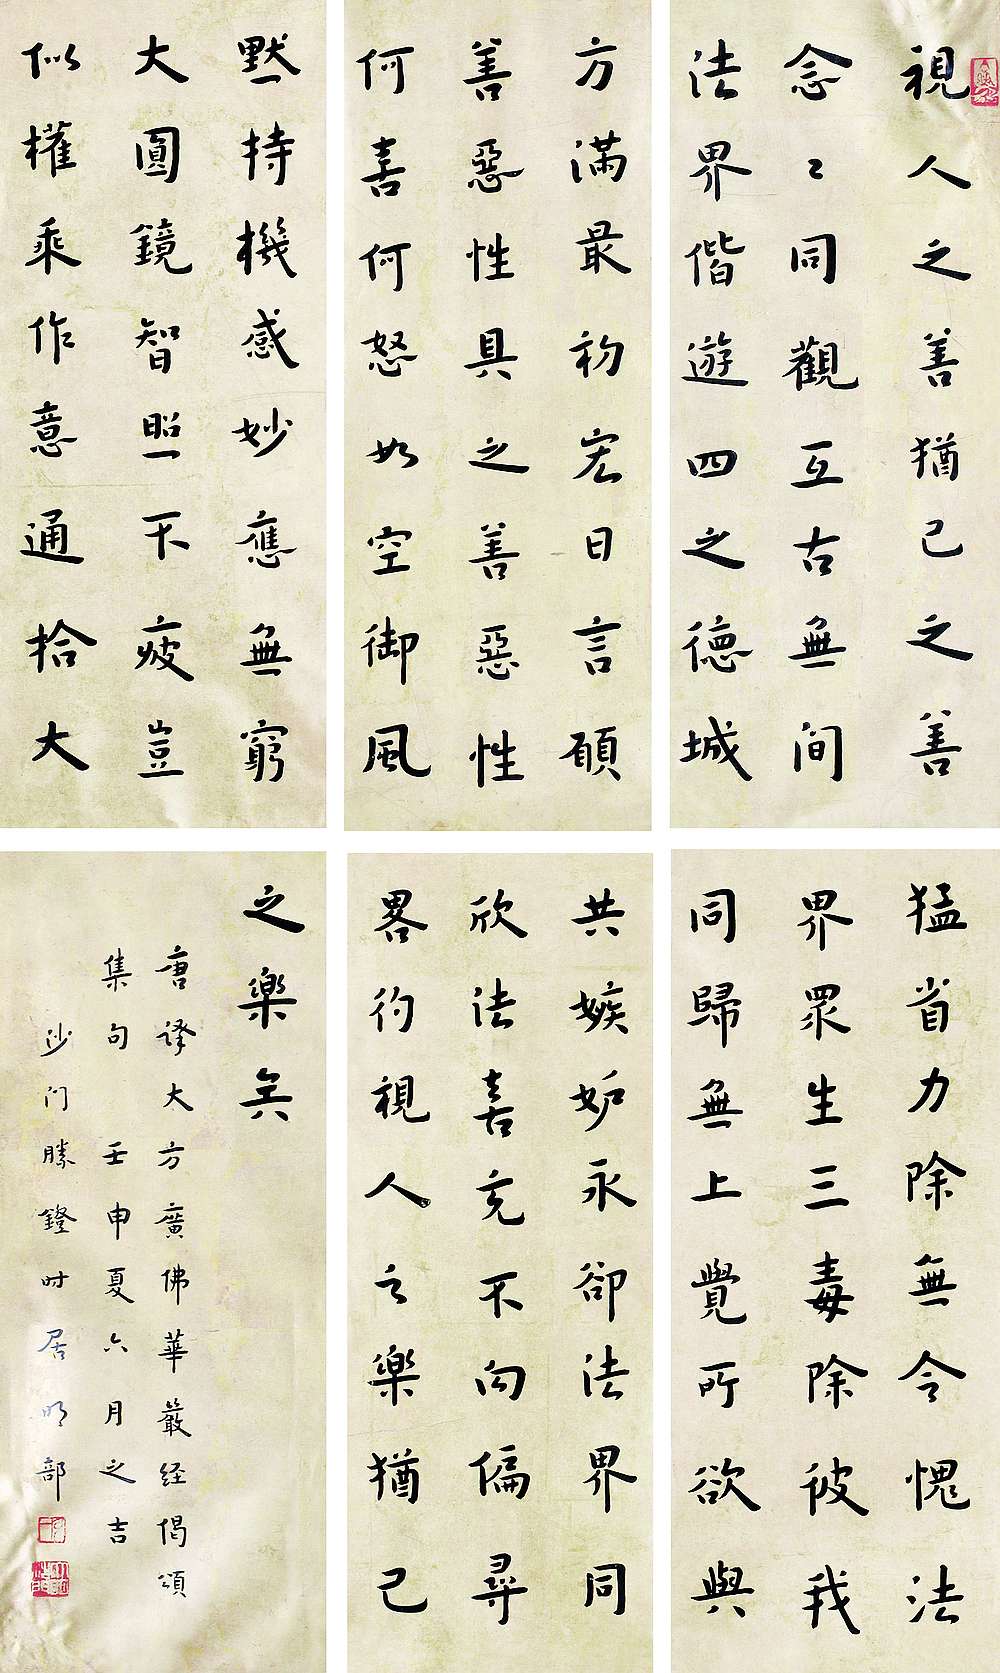 視人之善猶己之善
念〻同觀互古無间
法界偕遊四之德城
方滿最初宏日言碩
善惡性具之善惡性
何喜何怒如空御風
默持機感妙應無窮
大圓鏡智照下疲豈
似權乘作意通拾大
猛省力除無令愧法
界眾生三毒除彼我
同歸無上覺所欲與
共嫉妒永卻法界同
欣法喜充不向偏尋
畧彴視人之樂猶己
之樂矣
唐译大方廣佛華嚴经偈頌
集句 壬申夏六月之吉
沙门勝鐙时居明部